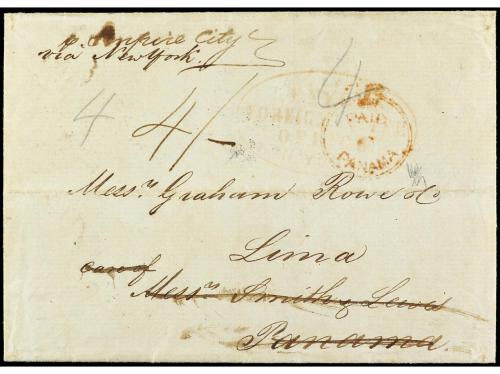 p Empire City
via New York
4 4/- 4
FOREIGN
PAID
PANAMA
Messrs Graham Rowe & Co
Lima
care of
Messrs Smith & Lewis
Panama.